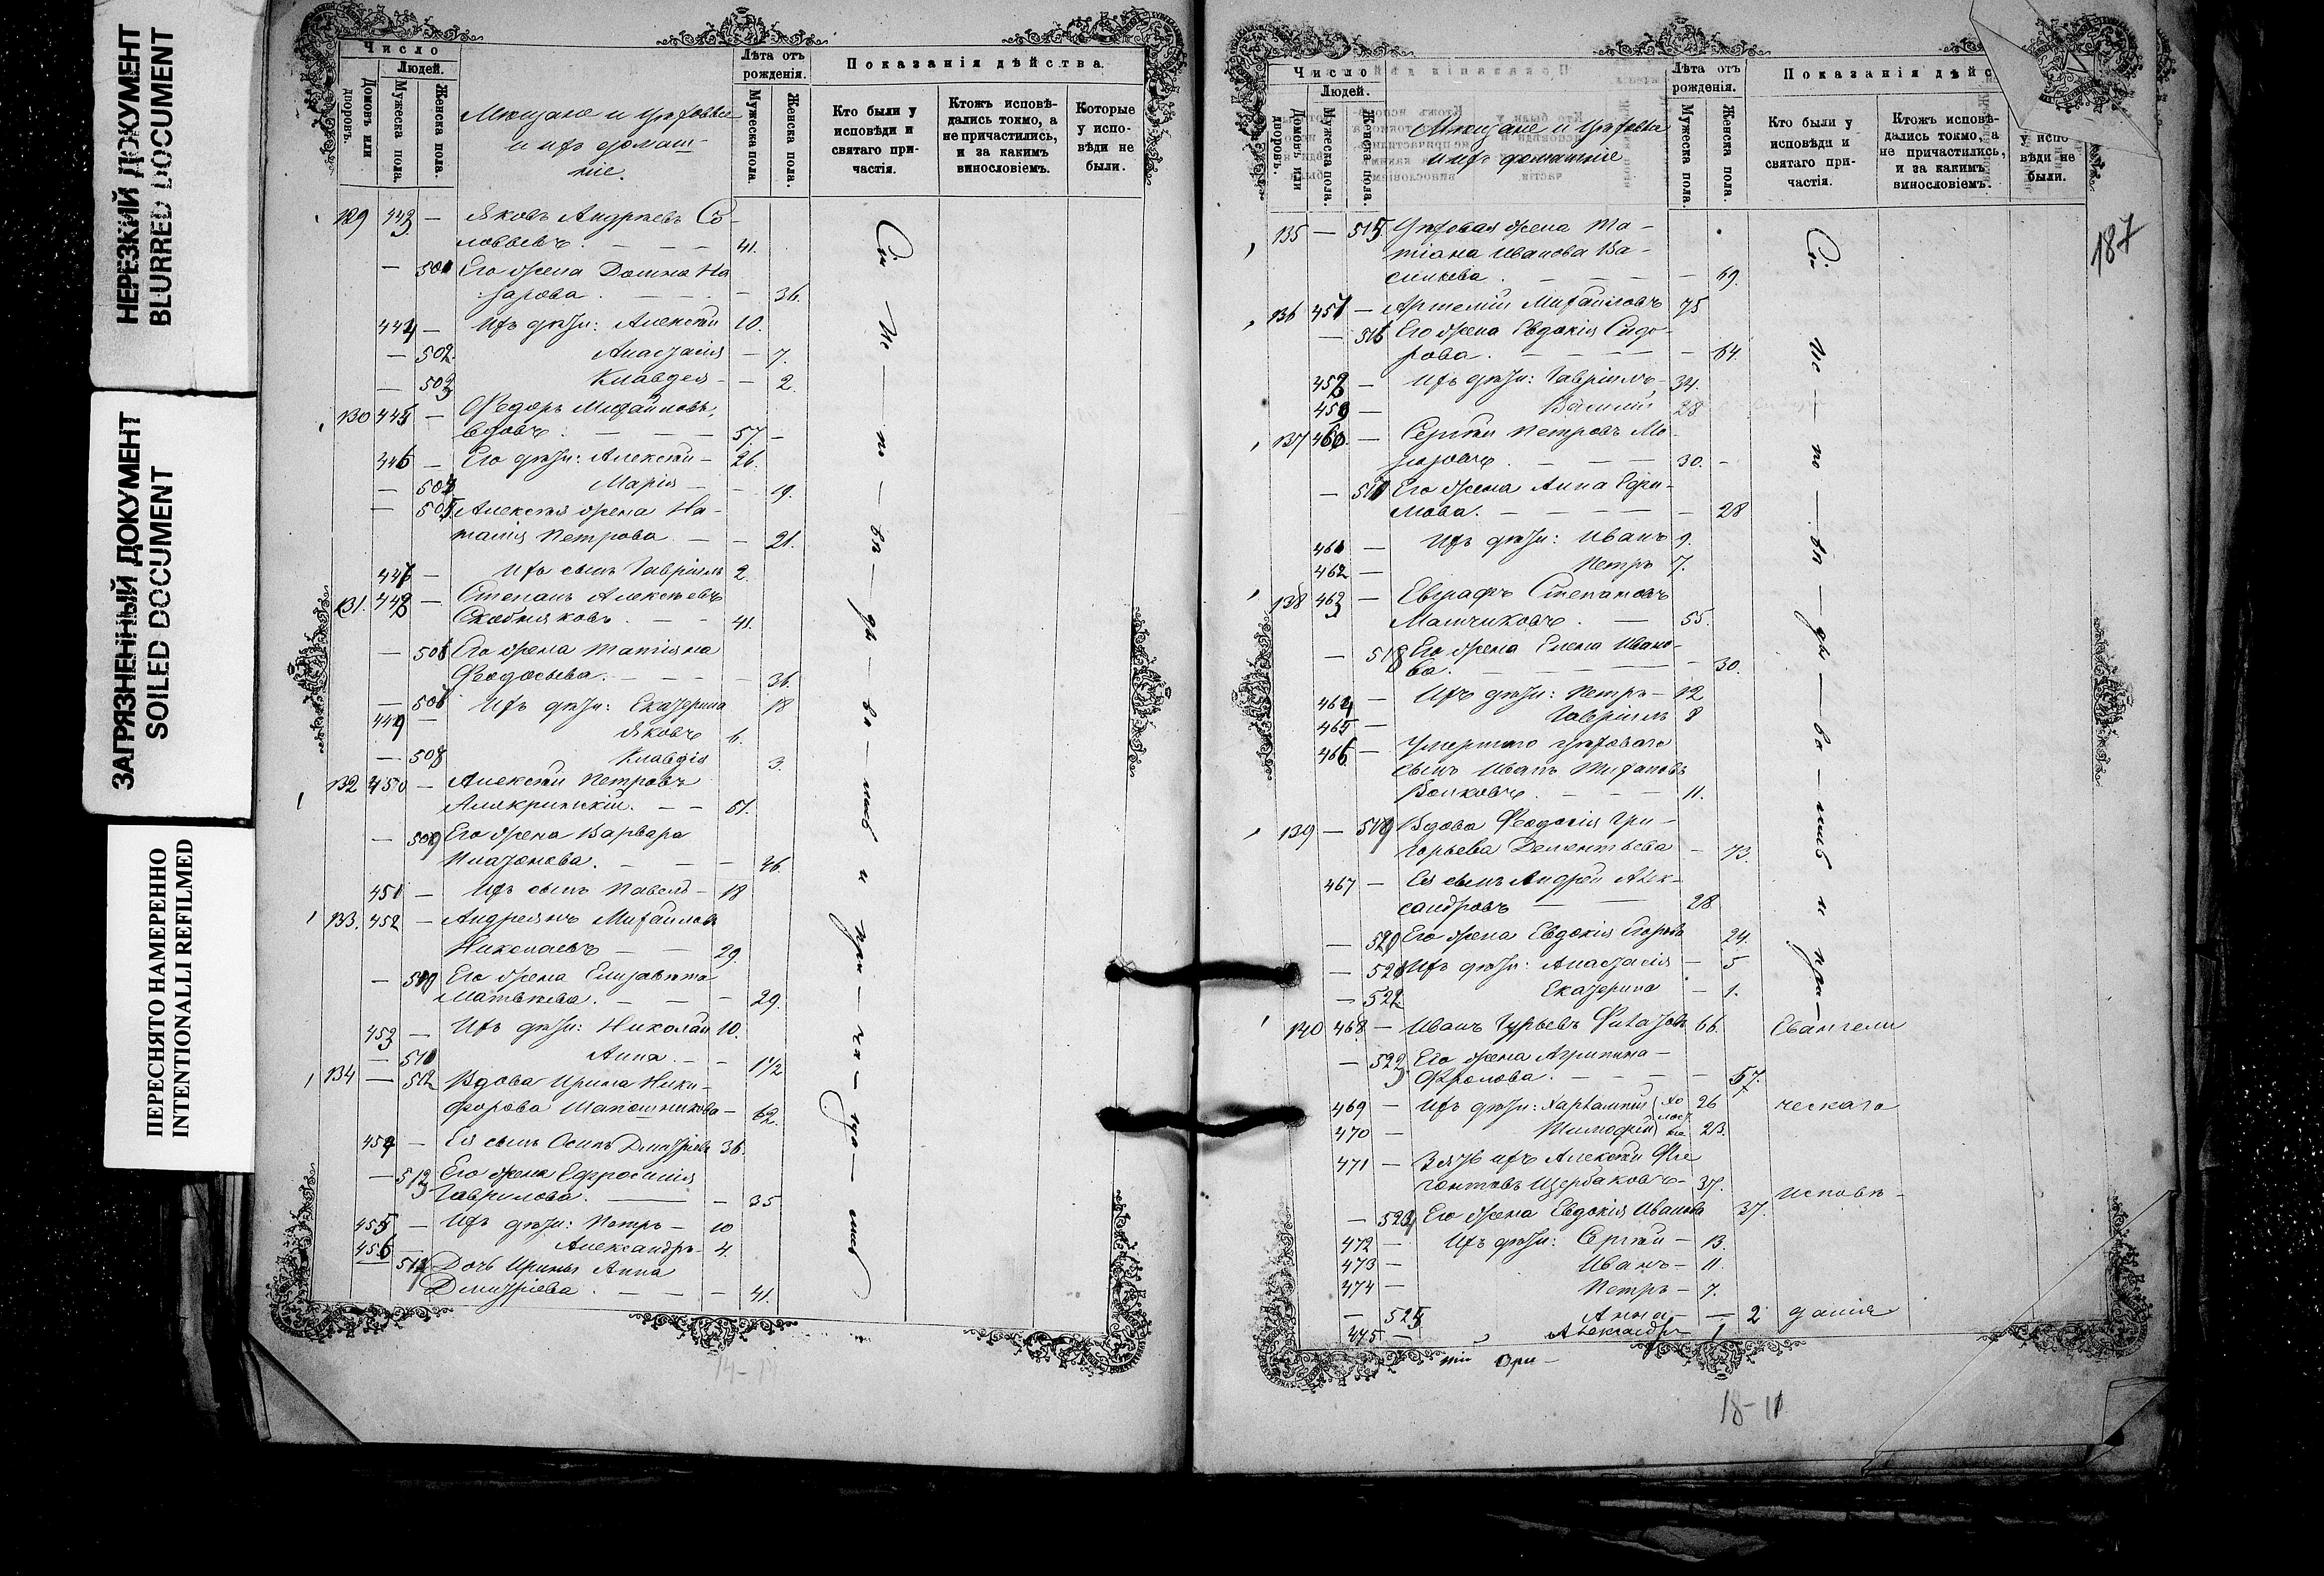 НЕРЕЗКИЙ ДОКУМЕНТ
BLURRED DOCUMENT
ЗАГРЯЗНЕННЫЙ ДОКУМЕНТ
SOILED DOCUMENT
ПЕРЕСНЯТО НАМЕРЕННО
INTENTIONALLI REFILMED
Число
Людей.
Домовъ или дворовъ.
Мужеска пола.
Женска пола.
Мѣщане и цѣховые
и ихъ домаш-
ніе.
Лѣта отъ
рожденія.
Мужеска пола.
Женска пола.
Показанія дѣйства.
Кто были у
исповѣди и
святаго при-
частія.
Ктожъ исповѣ-
дались токмо, а
не причастились,
и за какимъ
винословіемъ.
Которые
у испо-
вѣди не
были.
129 443 — Яковъ Андреевъ Со-
ловьевъ. — — — 41.
— 501 Его жена Домна На
зарова. — — — 36.
444 — Ихъ дѣти: Алексѣй 10.
— 502 Анастасія — 7.
— 503 Клавдея — — 2.
130 445 — Ѳедоръ Михайловъ,
вдовъ. — — — 57. —
446 — Его дѣти: Алексѣй — 26.
— 504 Марія — — 19.
— 505 Алексѣя жена На-
талія Петрова — — 21.
447 — Ихъ сынъ Гавріилъ 2.
131. 448 — Степанъ Алексѣевъ
Скобняковъ. — — 41.
— 506 Его жена Татіяна
Ѳеодосьева. — — — 36.
— 506 Ихъ дѣти: Екатерина 18
449 — Яковъ 6.
— 508 Клавдія 3.
132 450 — Алексѣй Петровъ
Алякринскій. — — 51.
— 509 Его жена Варвара
Платонова. — — — 46.
451 — Ихъ сынъ Павелъ — 18
133. 452 — Андреянъ Михайловъ
Николаевъ — — 29.
— 510 Его жена Елизавѣта
Матвѣева. — — — 29.
453 — Ихъ дѣти: Николай 10.
— 511 Анна. — — 1 1/2
134 — 512 Вдова Ирина Ники-
форова Шапошникова — 62.
454 — Ея сынъ Осипъ Дмитріевъ 36.
— 513 Его жена Ефросинія
Гаврилова. — — 35
455 — Ихъ дѣти: Петръ — 10
456 — Александръ — 4
514 Дочь Ирины Анна
Дмитріева. — — — 41.
Сіи Ис — по — вѣ — да — ва — лись и при — ча — ща — лись
Число
Людей.
Домовъ или дворовъ.
Мужеска пола.
Женска пола.
Мѣщане и цѣховые
и ихъ домашніе
Лѣта отъ
рожденія.
Мужеска пола.
Женска пола.
Показанія дѣйс
Кто были у
исповѣди и
святаго при-
частія.
Ктожъ исповѣ-
дались токмо, а
не причастились,
и за какимъ
винословіемъ.
у испо
вѣди не
были.
187
135 — 515 Цѣховая жена Та-
тіана Иванова Ва-
сильева. — — — 69.
136 457 — Артемій Михайловъ 75
— 516 Его жена Евдокія Сидо-
рова. — — — — 64.
458 — Ихъ дѣти: Гавріилъ — 34.
459 — Василій 28
137 460 — Сергѣй Петровъ Мо-
розовъ. — — — 30. —
— 517 Его жена Анна Ефи-
мова. — — — — 28
461 — Ихъ дѣти: Иванъ 9.
462 — Петръ 7.
138 463 — Евграфъ Степановъ
Мальчиковъ. — 55.
— 518 Его жена Елена Ивано-
ва. — — — 30.
464 — Ихъ дѣти: Петръ — 12
465 — Гавріилъ 8
466 — Умершаго цѣховаго
сынъ Иванъ
Волковъ. — — — 11.
139 — 519 Вдова Ѳеодосія Гри-
горьева Дементьева — 73.
467 — Ея сынъ Андрей Алек-
сандровъ — — 28
— 520 Его жена Евдокія Егорова 24.
— 521 Ихъ дѣти: Анастасія — 5
— 522 Екатерина — 1.
140 468 — Иванъ Гурьевъ Филатовъ 66.
— 523 Его жена Агрипина —
Фролова. — — — — 57.
469 — Ихъ дѣти: Харлампій 26
470 — Тимофей 23.
471 — Зять ихъ Алексѣй
Щербаковъ — 37.
— 524 Его жена Евдокія Иванова 37.
472 — Ихъ дѣти: Сергѣй — 13.
473 — Иванъ — 11.
474 — Петръ — 7.
— 525 Анна — — 2
475 — Александръ 1
Сіи Ис — по — вѣ — да — ва — лись и при —
Евангели
ческаго
исповѣ-
данія
18-11